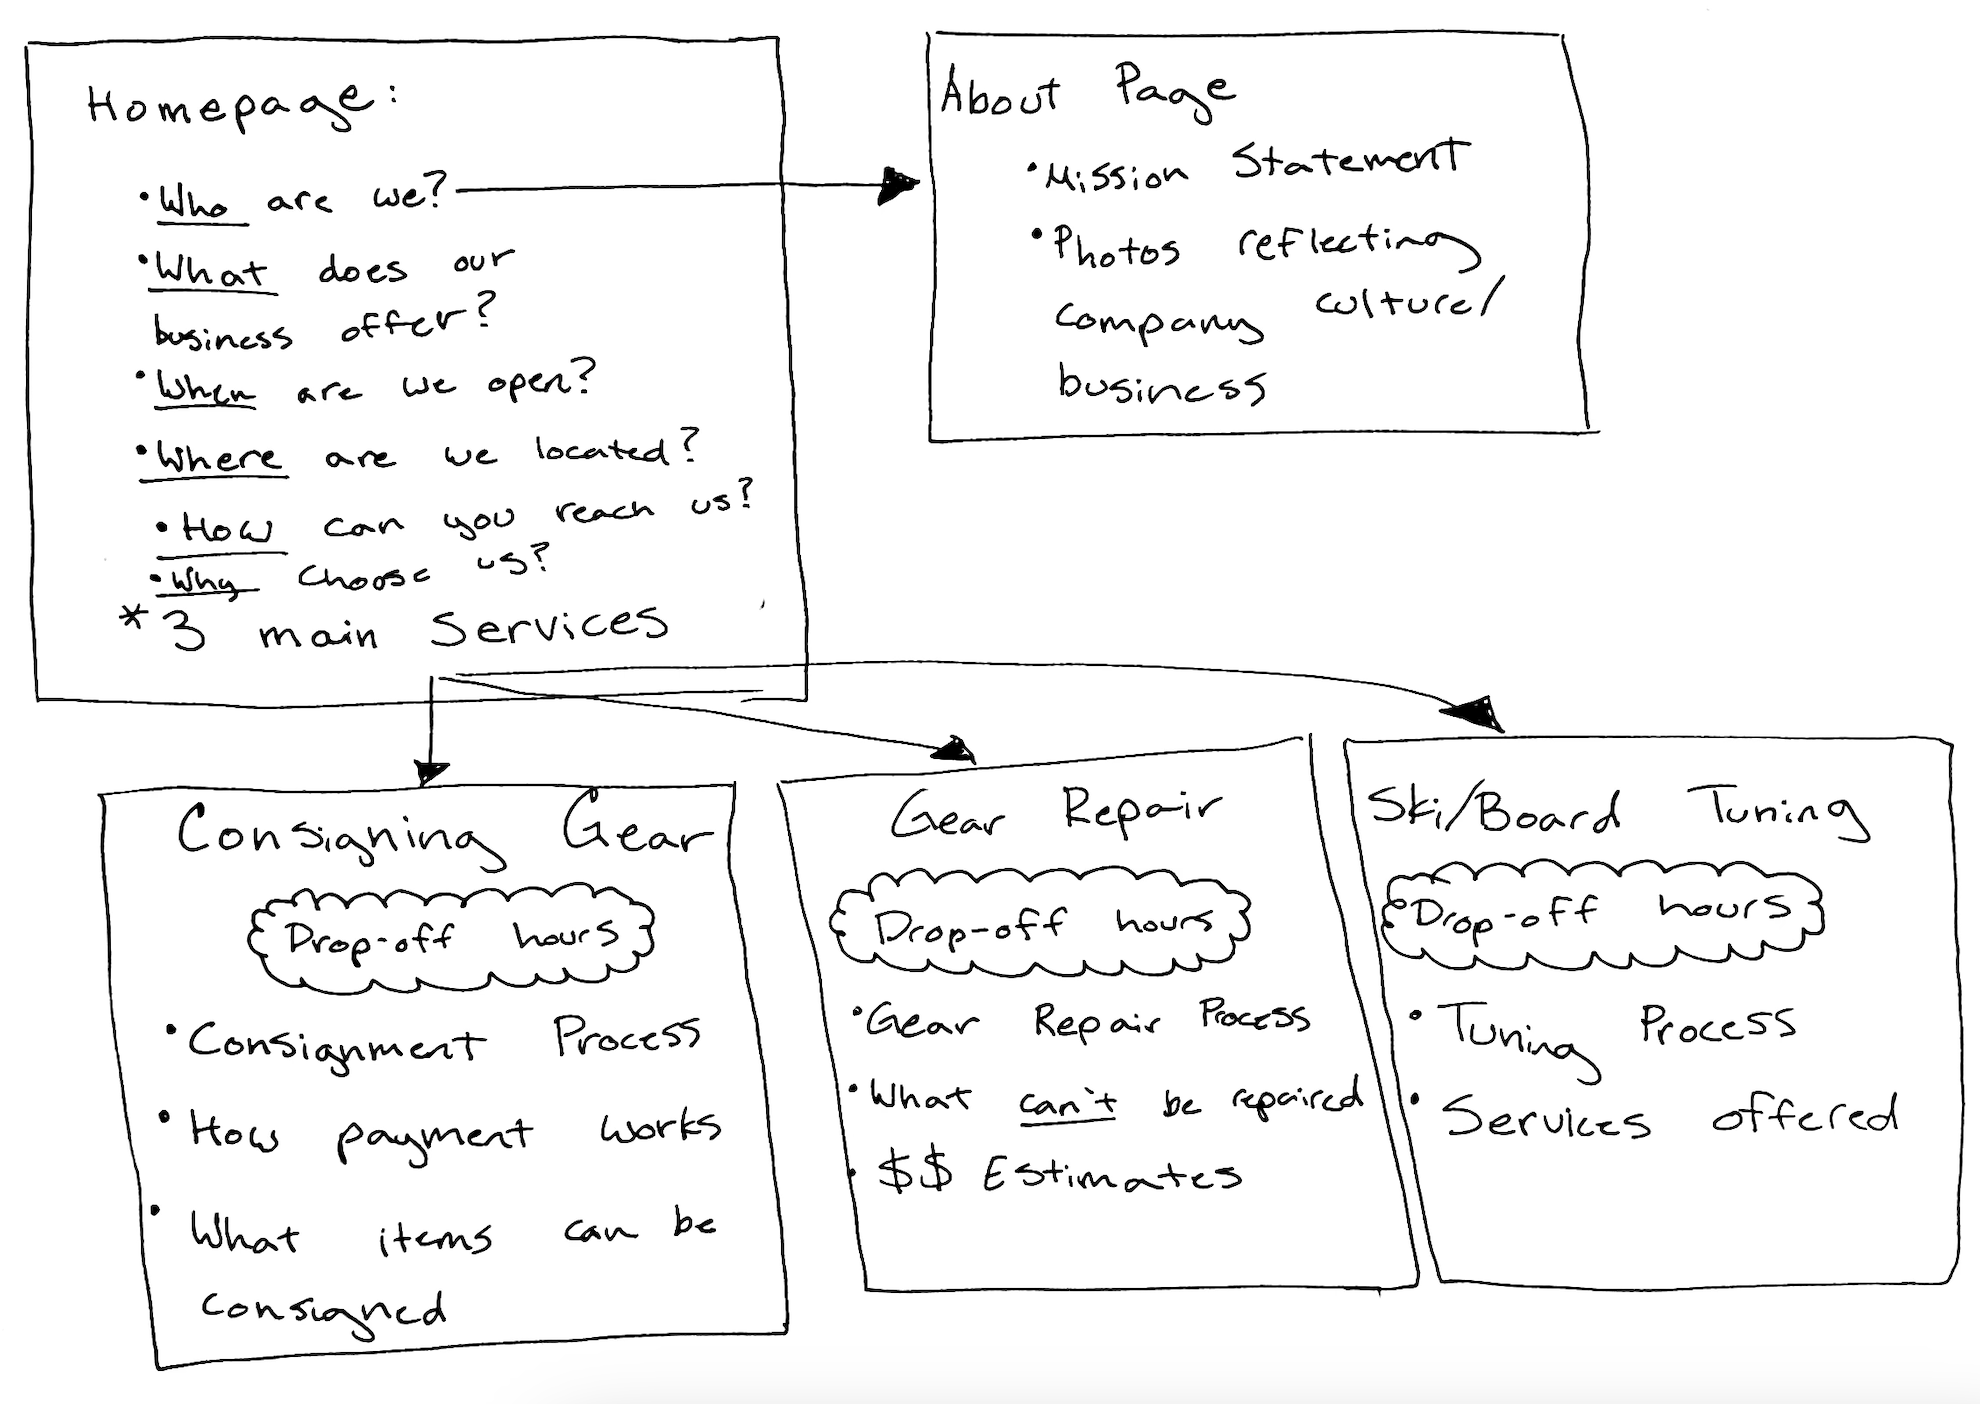 Homepage:
• Who are we?
• What does our
business offer?
• When are we open?
• Where are we located?
• How can you reach us?
• Why choose us?
* 3 main services
About Page
• Mission Statement
• Photos reflecting
company culture/
business
Consigning Gear
Drop-off hours
• Consignment Process
• How payment works
• What items can be
consigned
Gear Repair
Drop-off hours
• Gear Repair Process
• What can't be repaired
• $$ Estimates
Ski/Board Tuning
Drop-off hours
• Tuning Process
• Services offered